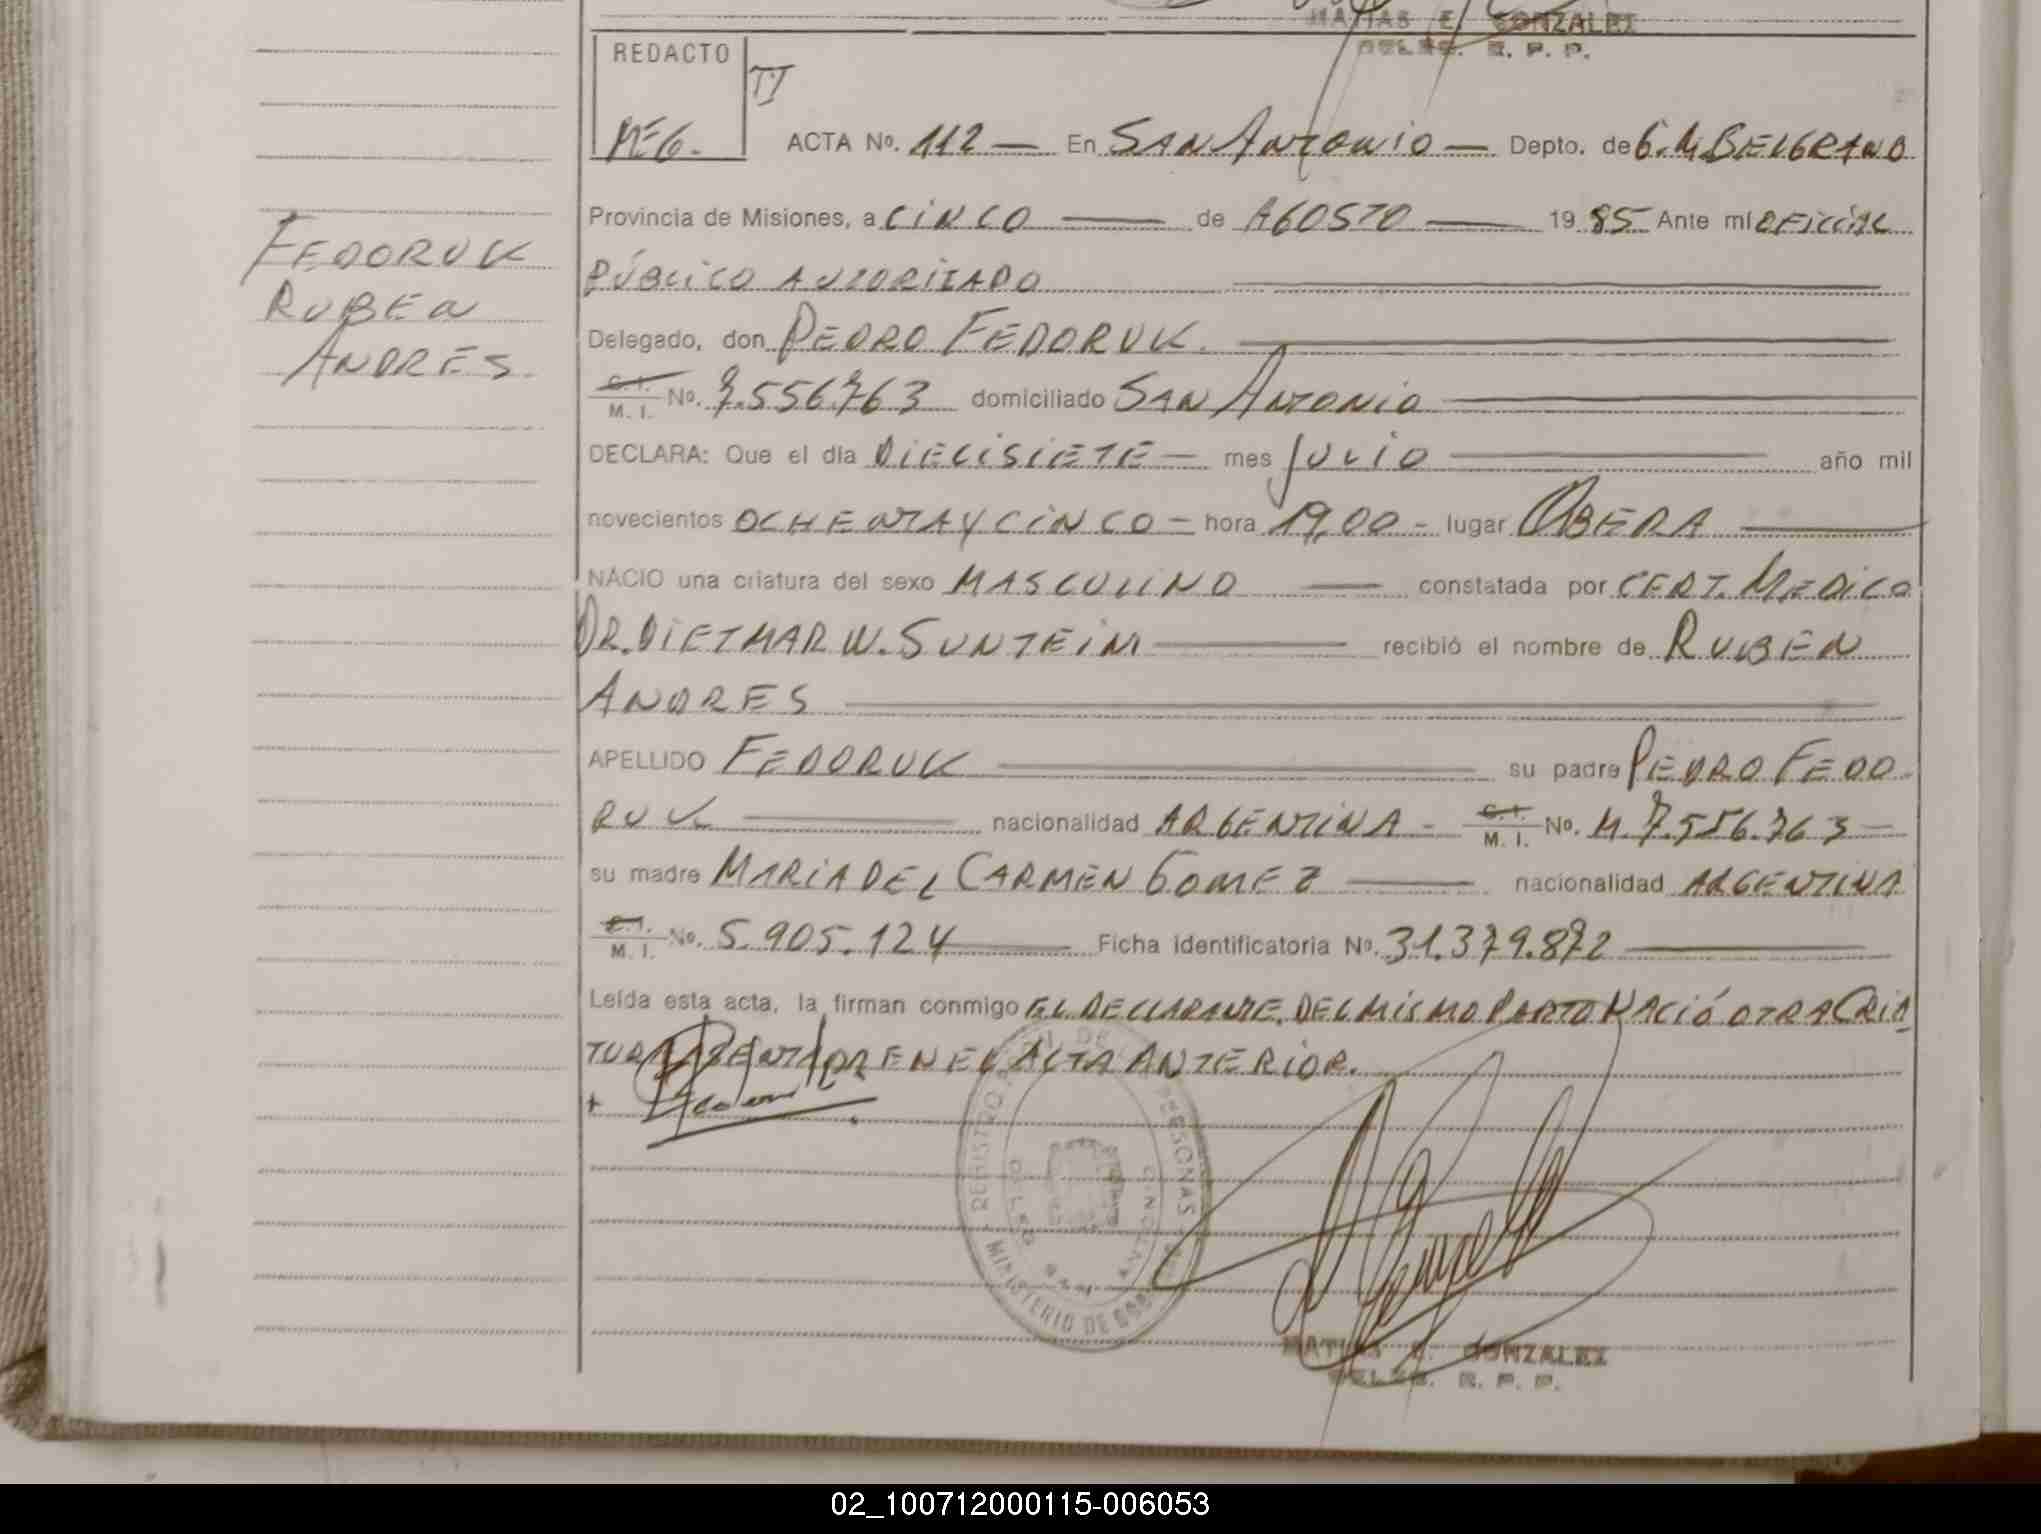 MATIAS E. GONZALEZ
DELEG. R. P. P.
REDACTO
MEG.
ACTA No. 112 — En SAN ANTONIO — Depto. de G. M. BELGRANO
Provincia de Misiones, a CINCO — de AGOSTO — 1985 Ante mí OFICIAL
PÚBLICO AUTORIZADO
Delegado, don PEDRO FEDORUK.
C. I. / M. I. No. 7.556.763 domiciliado SAN ANTONIO
DECLARA: Que el día DIECISIETE — mes JULIO — año mil
novecientos OCHENTA Y CINCO — hora 19,00 — lugar OBERA
NACIO una criatura del sexo MASCULINO — constatada por CERT. MEDICO
DR. DIETMAR W. SUNTEIM — recibió el nombre de RUBEN
ANDRES
APELLIDO FEDORUK — su padre PEDRO FEDO
RUK — nacionalidad ARGENTINA - C. I. / M. I. No. M. 7.556.763 —
su madre MARIA DEL CARMEN GOMEZ — nacionalidad ARGENTINA
C. I. / M. I. No. 5.905.124 — Ficha identificatoria No. 31.379.872
Leída esta acta, la firman conmigo EL DECLARANTE. DEL MISMO PARTO NACIÓ OTRA CRIA
TURA EN EL ACTA ANTERIOR.
FEDORUK
RUBEN
ANDRES.
REGISTRO PERSONAS
MINISTERIO DE
MATIAS E. GONZALEZ
DELEG. R. P. P.
02_100712000115-006053